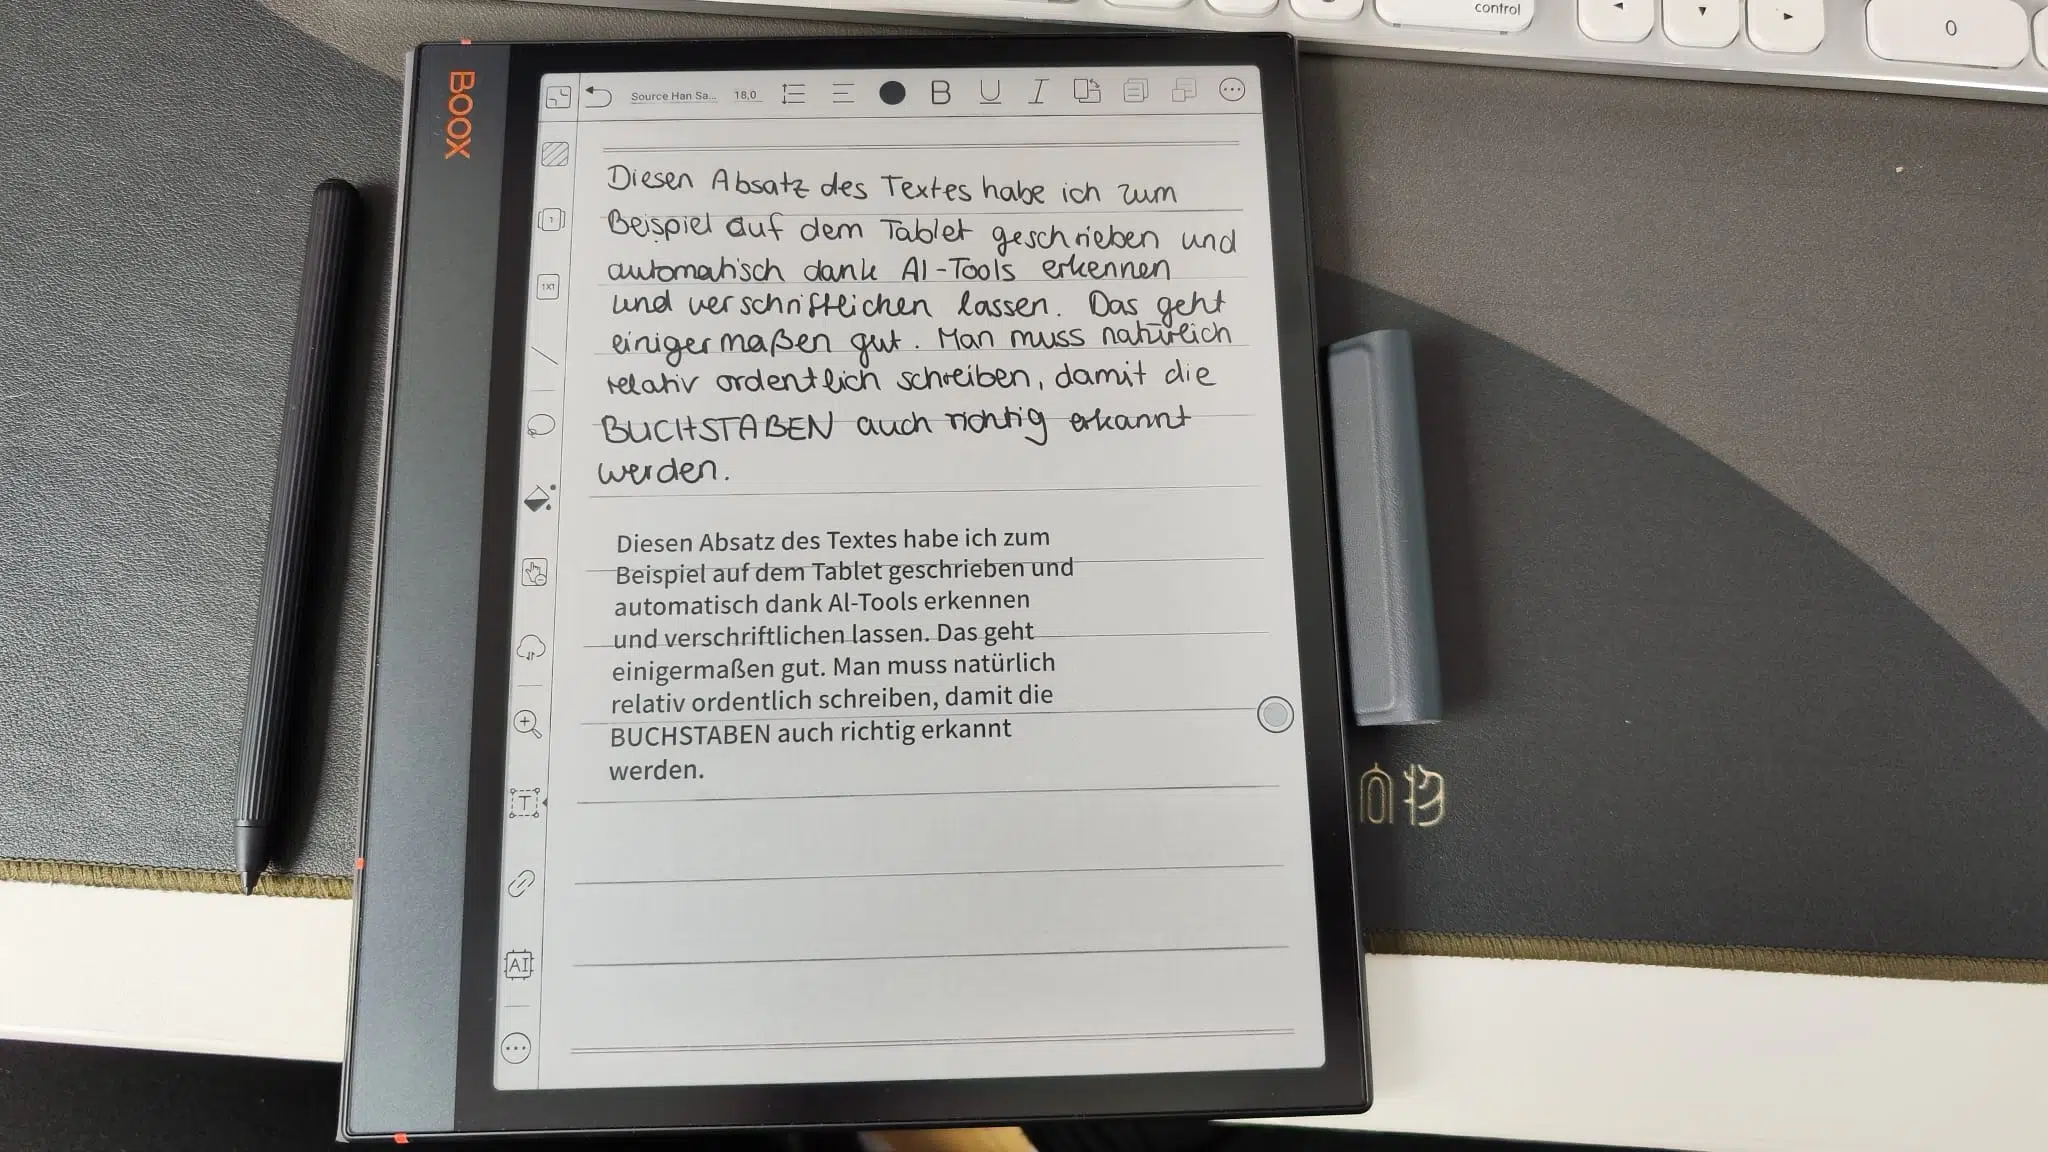 control
0
BOOX
Source Han Sa... 18,0 B U I
1
1X1
Diesen Absatz des Textes habe ich zum
Beispiel auf dem Tablet geschrieben und
automatisch dank AI-Tools erkennen
und verschriftlichen lassen. Das geht
einigermaßen gut. Man muss natürlich
relativ ordentlich schreiben, damit die
BUCHSTABEN auch richtig erkannt
werden.
Diesen Absatz des Textes habe ich zum
Beispiel auf dem Tablet geschrieben und
automatisch dank Al-Tools erkennen
und verschriftlichen lassen. Das geht
einigermaßen gut. Man muss natürlich
relativ ordentlich schreiben, damit die
BUCHSTABEN auch richtig erkannt
werden.
T
AI